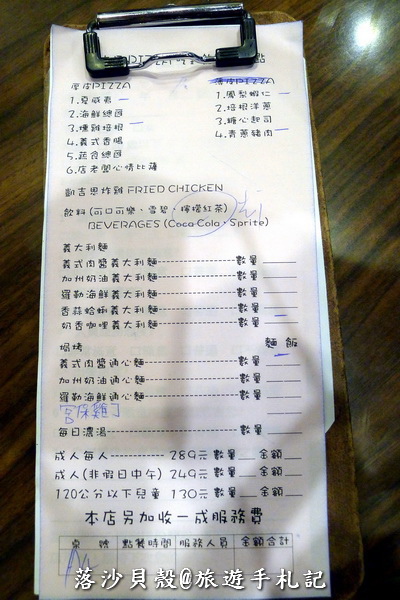 PIZZA 點
厚皮PIZZA 薄皮PIZZA
1.夏威夷 1.鳳梨蝦仁
2.海鮮總匯 2.培根洋蔥
3.燻雞培根 3.糖心起司
4.義式香腸 4.青蔥豬肉
5.蔬食總匯
6.店老闆心情比薩
凱吉思炸雞 FRIED CHICKEN
飲料(可口可樂、雪碧、檸檬紅茶)
BEVERAGES (Coca-Cola、Sprite)
義大利麵
義式肉醬義大利麵 數量
加州奶油義大利麵 數量
羅勒海鮮義大利麵 數量
香蒜蛤蜊義大利麵 數量
奶香咖哩義大利麵 數量
焗烤 麵 飯
義式肉醬通心麵 數量
加州奶油通心麵 數量
羅勒海鮮通心麵 數量
宮保雞丁
每日濃湯 數量
成人每人 289元 數量 金額
成人(非假日中午) 249元 數量 金額
120公分以下兒童 130元 數量 金額
本店另加收一成服務費
桌 號 點餐時間 服務人員 金額合計
落沙貝殼@旅遊手札記